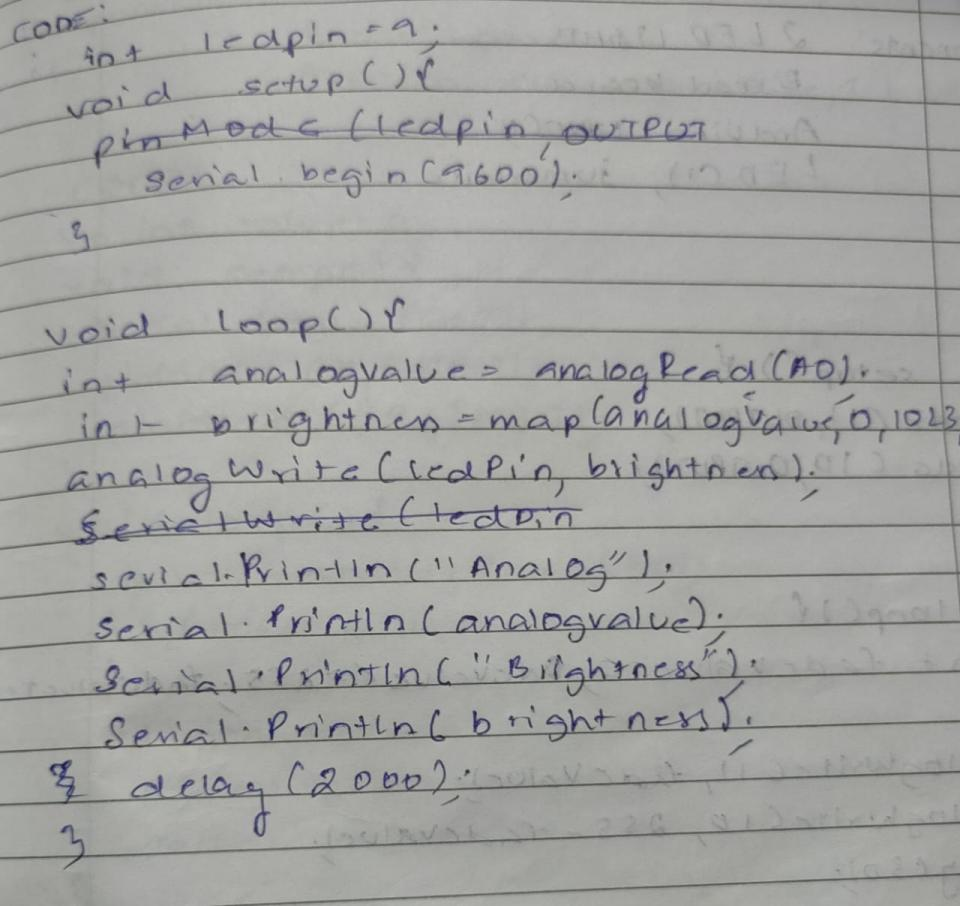 CODE:
int ledpin = 9;
void setup(){
pinMode (ledpin, OUTPUT
Serial. begin (9600);
}
void loop(){
int analogvalue = analogRead (A0);
int brightness = map(analogvalue, 0, 1023,
analogWrite (ledPin, brightness);
SerialWrite (ledpin
serial.Println ("Analog");
Serial.Println (analogvalue);
Serial.Println ("Brightness");
Serial.Println (brightness);
} delay (2000);
}